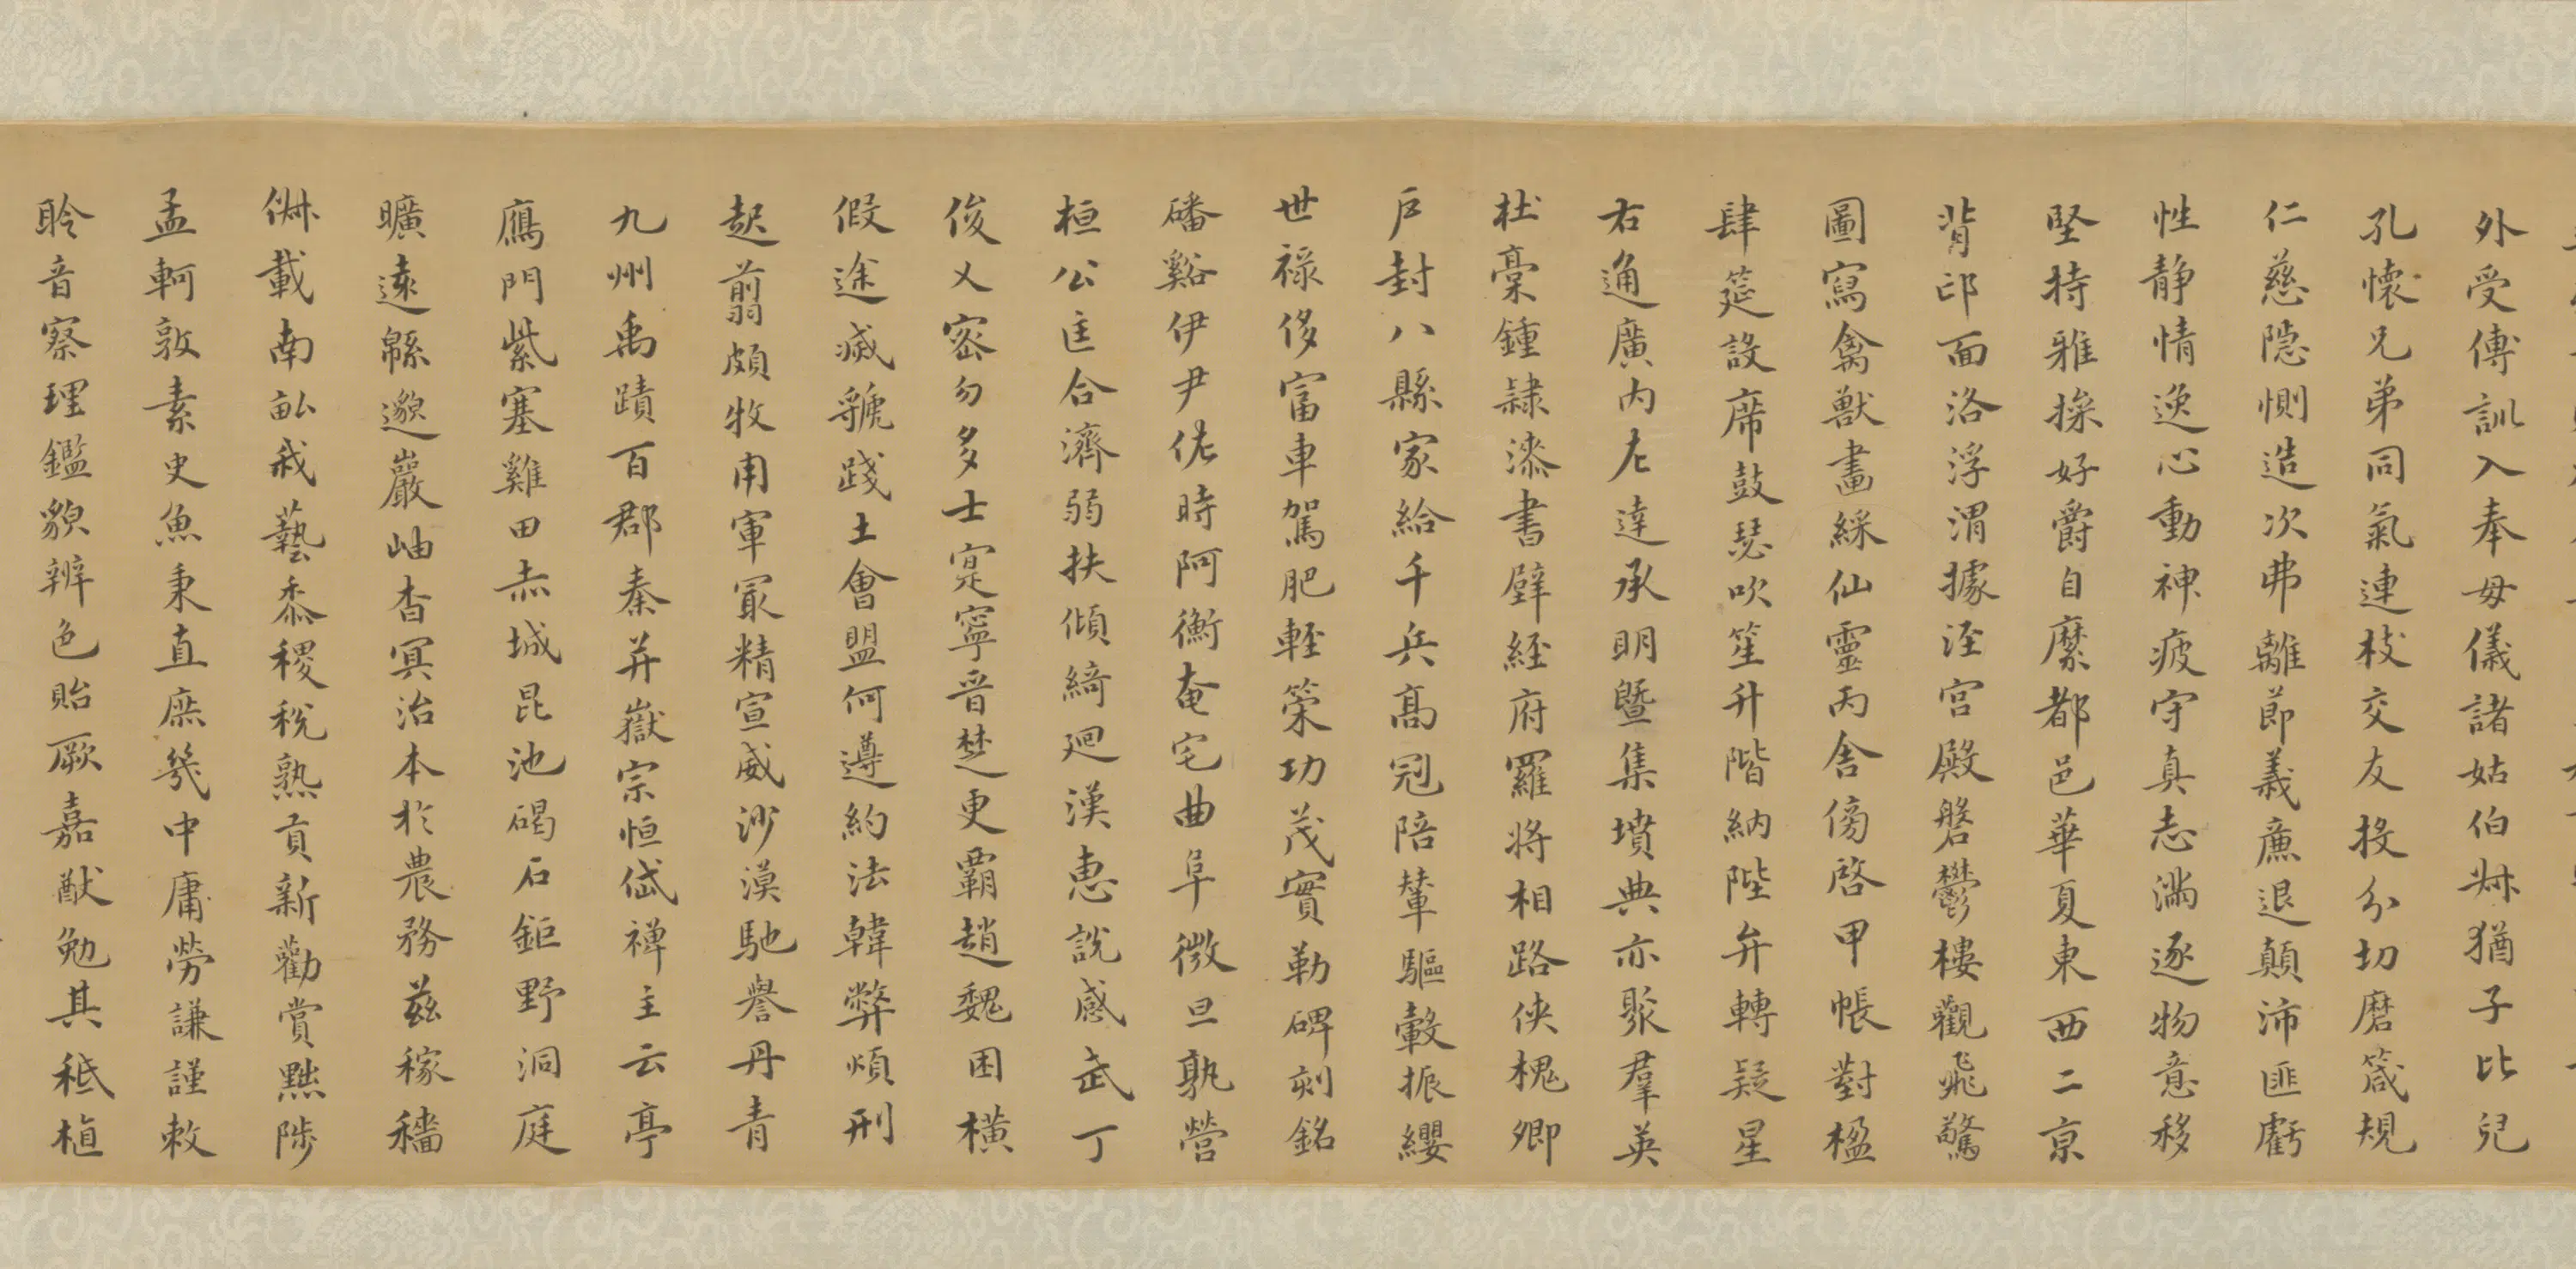 外受傅訓入奉母儀諸姑伯叔猶子比兒
孔懷兄弟同氣連枝交友投分切磨箴規
仁慈隱惻造次弗離節義廉退顛沛匪虧
性静情逸心動神疲守真志滿逐物意移
堅持雅操好爵自縻都邑華夏東西二京
背邙面洛浮渭據涇宮殿磐鬱樓觀飛驚
圖寫禽獸畫綵仙靈丙舍傍啓甲帳對楹
肆筵設席鼓瑟吹笙升階納陛弁轉疑星
右通廣内左達承明暨集墳典亦聚羣英
杜稾鍾隸漆書壁經府羅將相路俠槐卿
戶封八縣家給千兵髙冠陪輦驅轂振纓
世禄侈富車駕肥輕策功茂實勒碑刻銘
磻谿伊尹佐時阿衡奄宅曲阜微旦孰營
桓公匡合濟弱扶傾綺迴漢惠說感武丁
俊乂密勿多士寔寧晉楚更覇趙魏困橫
假途滅虢踐土會盟何遵約法韓弊煩刑
起翦頗牧用軍最精宣威沙漠馳譽丹青
九州禹蹟百郡秦并嶽宗恒岱禪主云亭
鴈門紫塞雞田赤城昆池碣石鉅野洞庭
曠遠緜邈巖岫杳冥治本於農務茲稼穡
俶載南畝我藝黍稷稅熟貢新勸賞黜陟
孟軻敦素史魚秉直庶幾中庸勞謙謹敕
聆音察理鑑貌辨色貽厥嘉猷勉其祗植